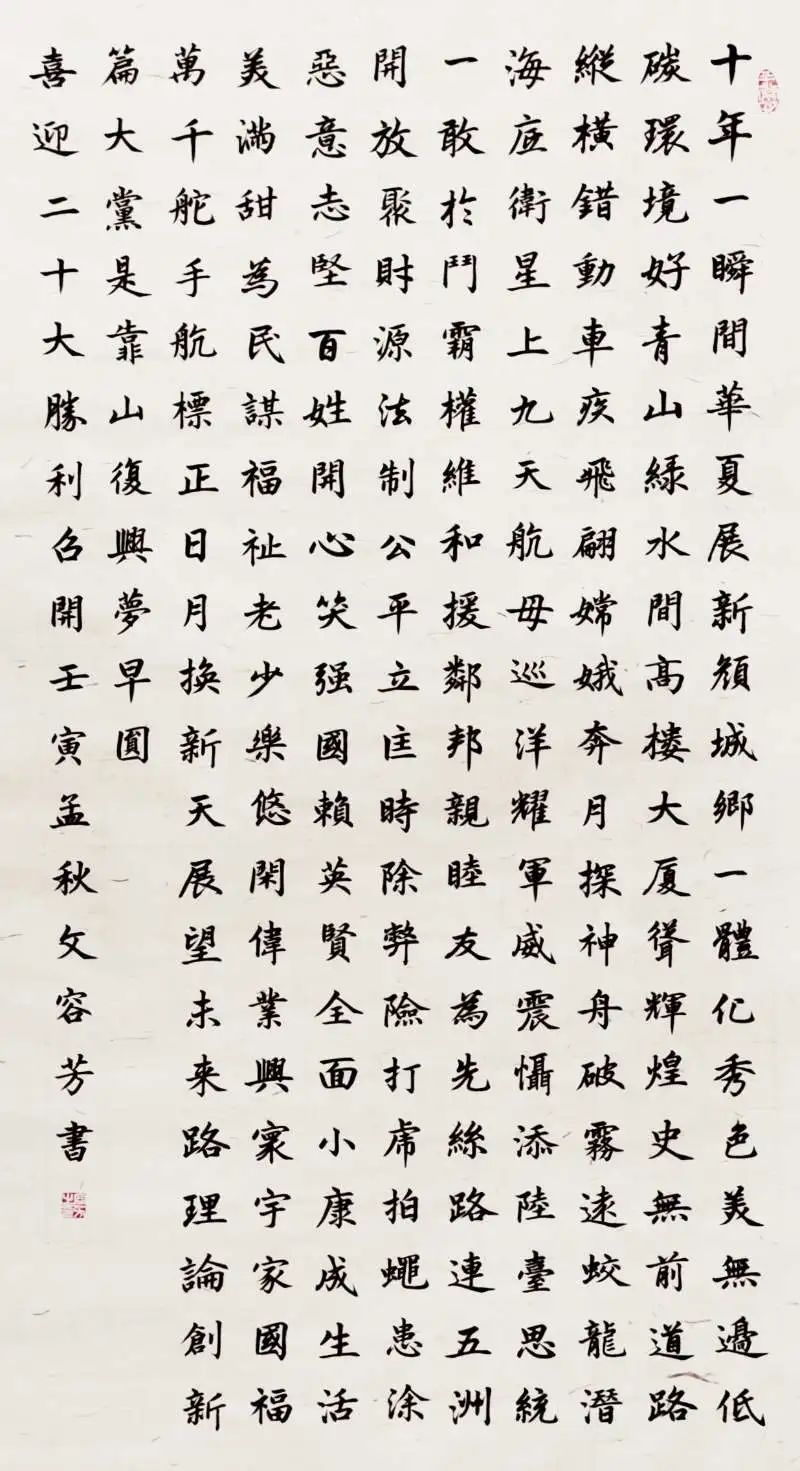 十年一瞬間華夏展新顏城鄉一體化秀色美無邊低
碳環境好青山綠水間高樓大廈聳輝煌史無前道路
縱橫錯動車疾飛翩嫦娥奔月探神舟破霧遠蛟龍潛
海底衛星上九天航母巡洋耀軍威震懾添陸臺思統
一敢於鬥霸權維和援鄰邦親睦友為先絲路連五洲
開放聚財源法制公平立匡時除弊險打虎拍蠅患涂
惡意志堅百姓開心笑强國賴英賢全面小康成生活
美滿甜為民謀福祉老少樂悠閑偉業興寰宇家國福
萬千舵手航標正日月換新天展望未來路理論創新
篇大黨是靠山復興夢早圓
喜迎二十大勝利召開壬寅孟秋文容芳書